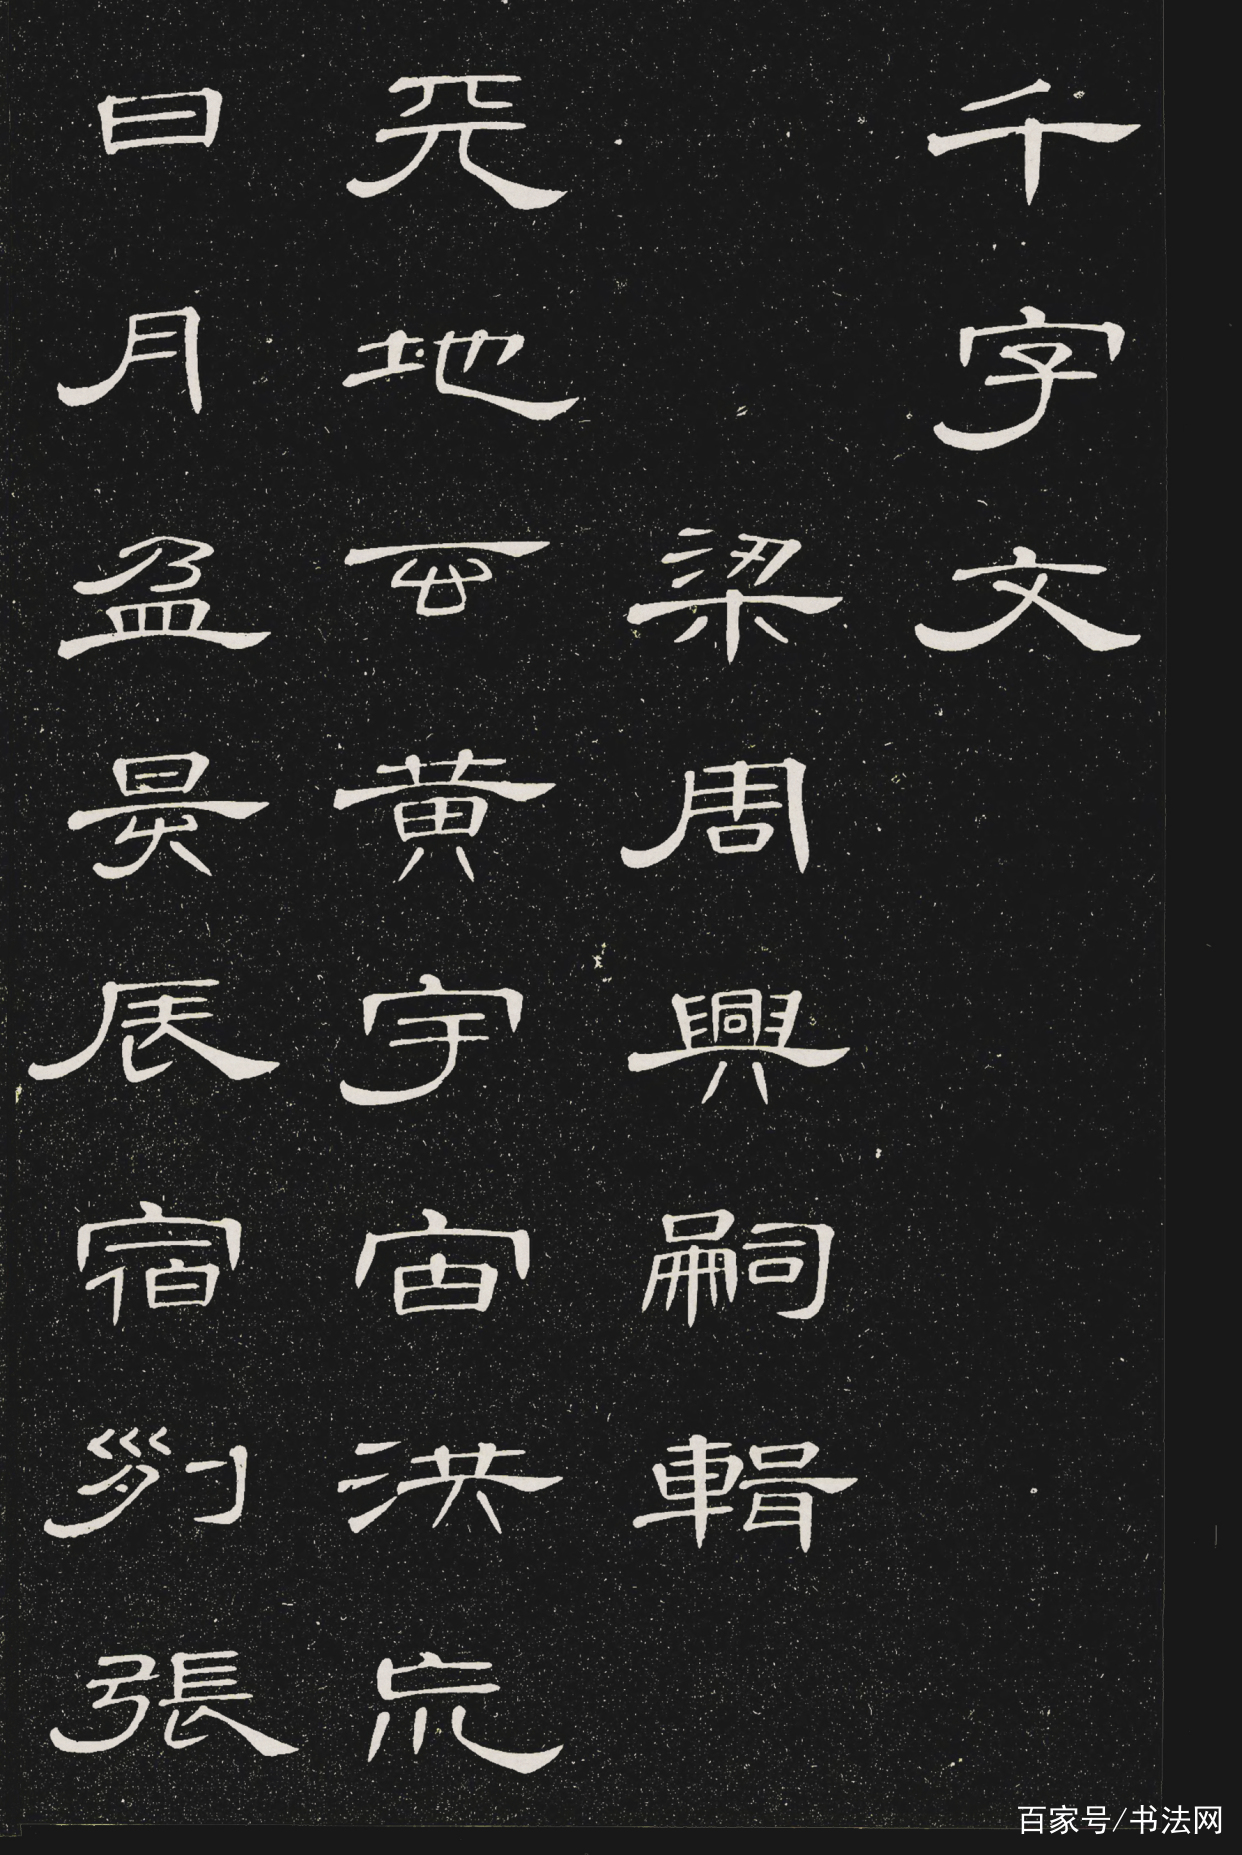 千字文
梁周興嗣輯
天地玄黃宇宙洪荒
日月盈昃辰宿列張
百家号/书法网